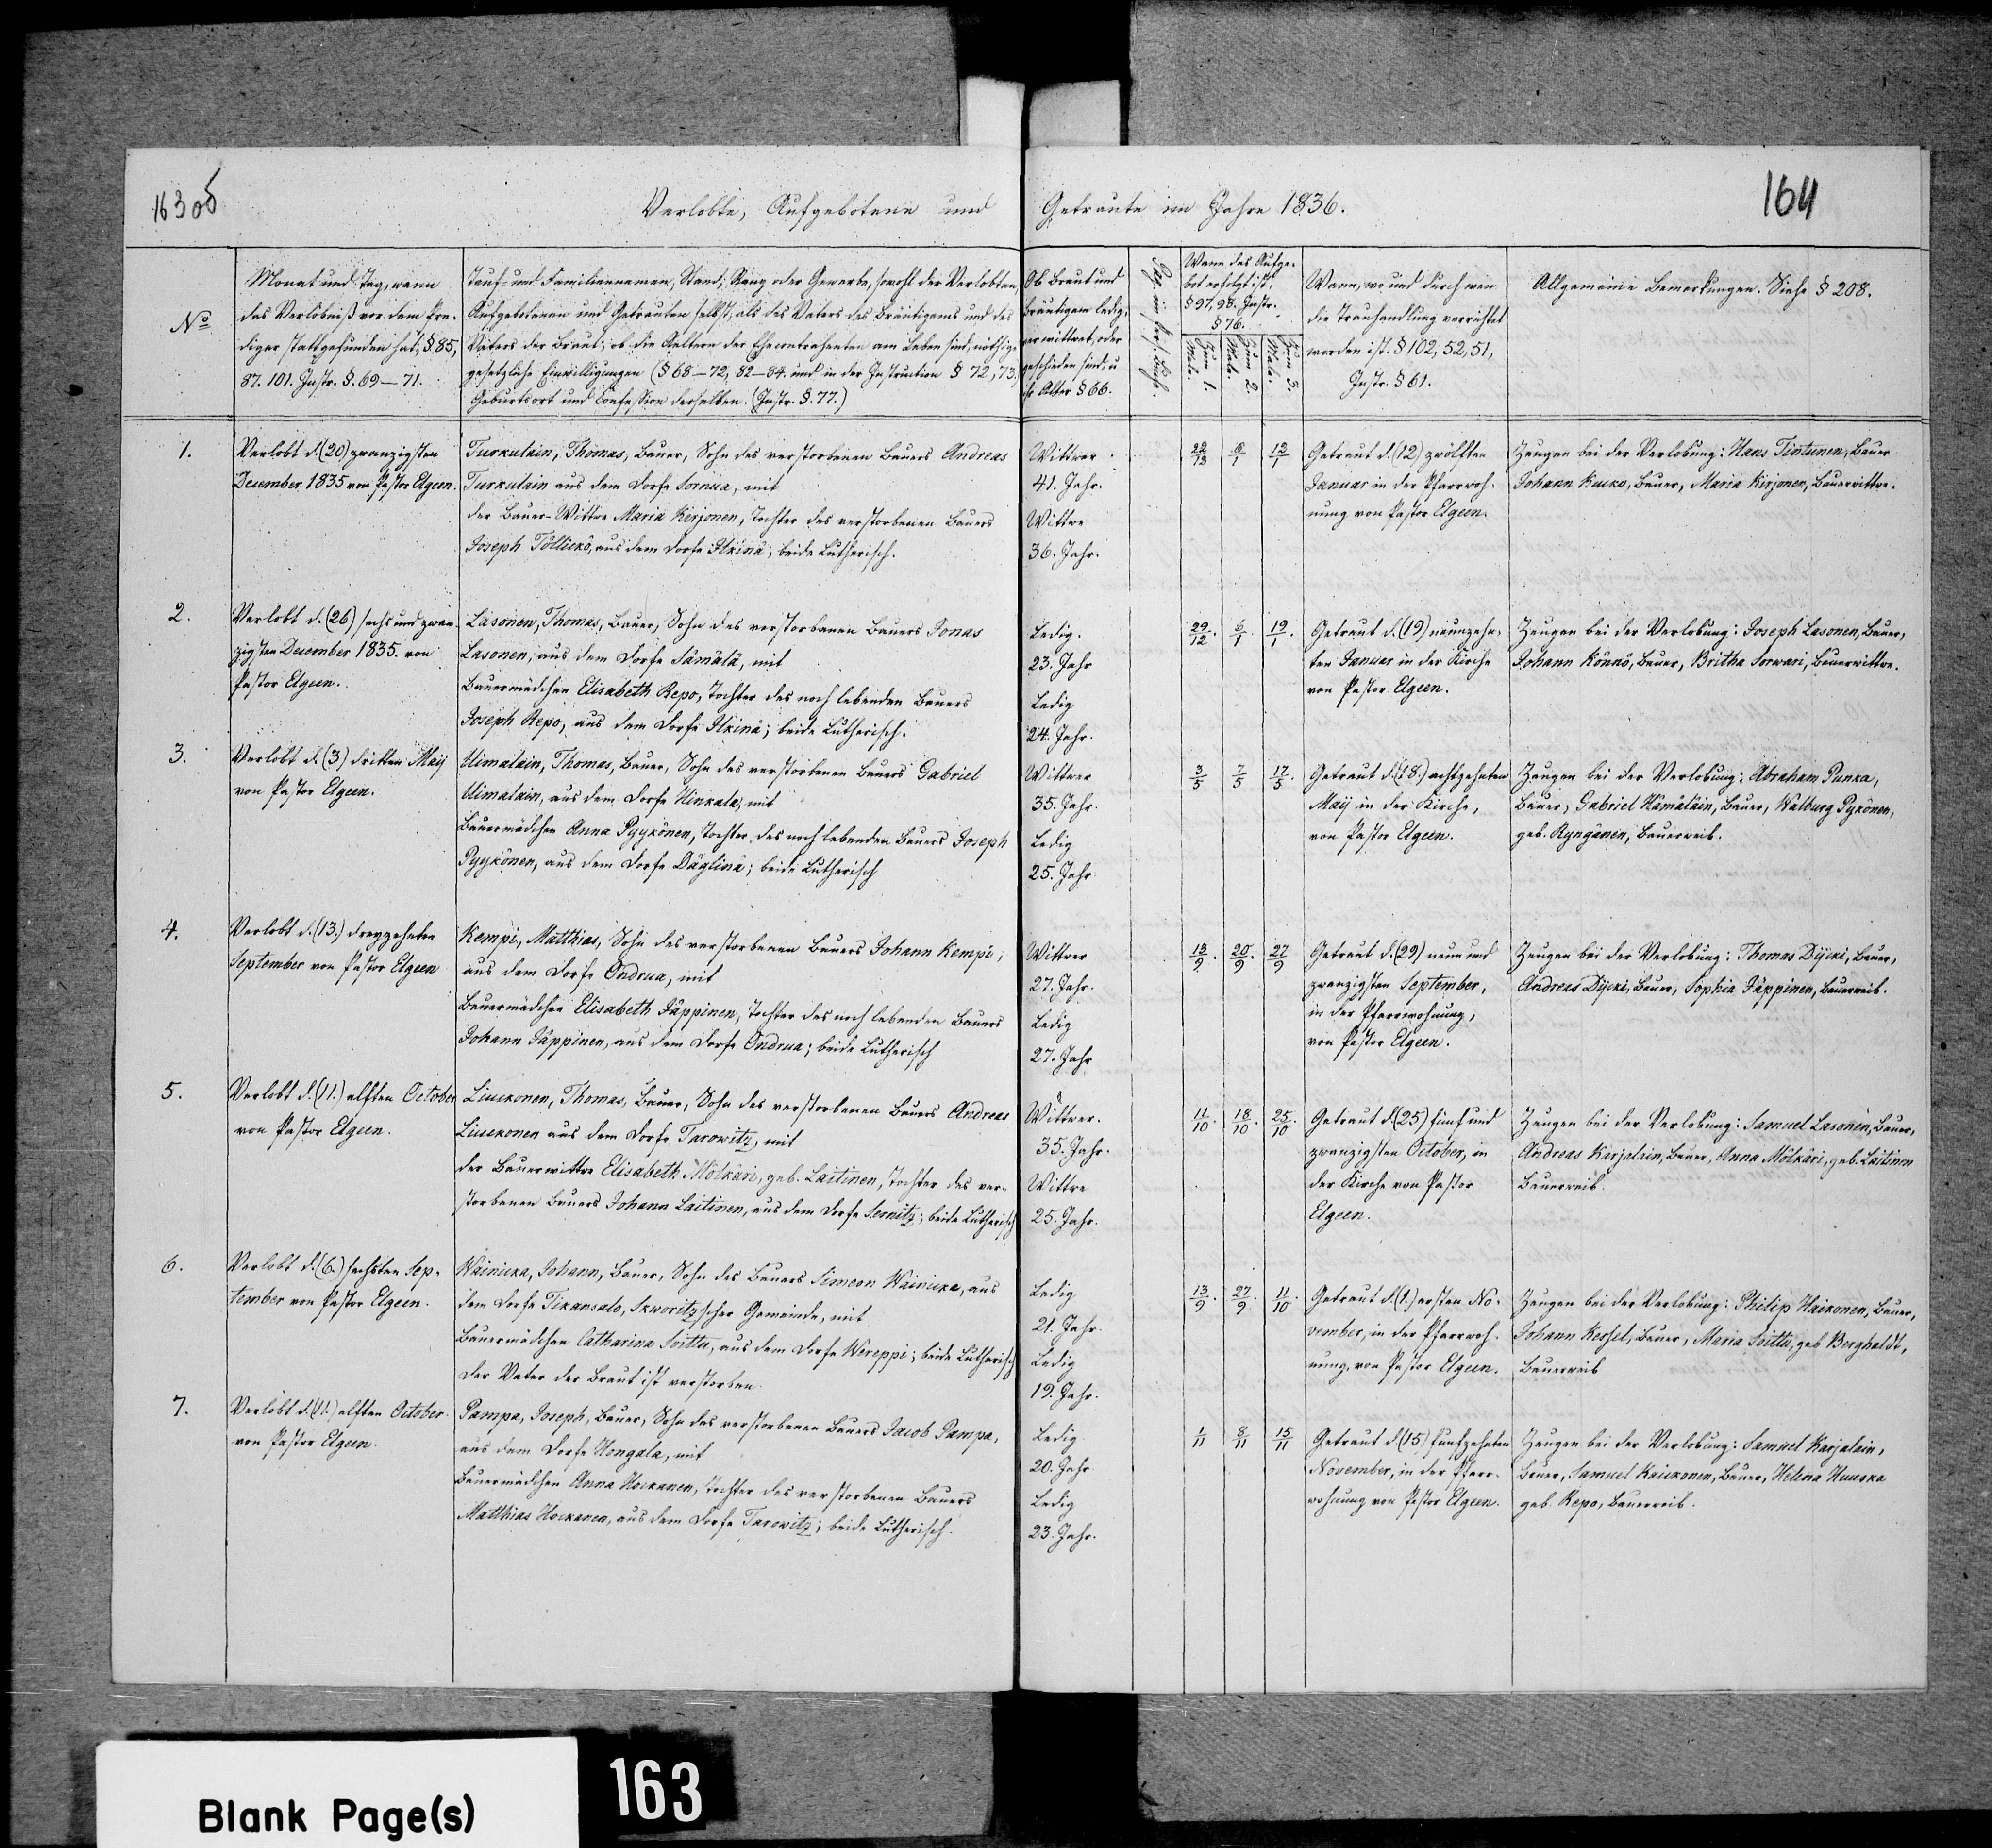 163об
Verlobte, Aufgebotene und Getraute im Jahre 1836.
164
№
Monat und Tag, wann
das Verlöbniß vor dem Pre-
diger stattgefunden hat, §. 85,
87. 101. Instr. §. 69—71.
Tauf- und Familiennamen, Stand, Rang oder Gewerbe, sowohl der Verlobten,
Aufgebotenen und Getrauten selbst, als des Vaters des Bräutigams und des
Vaters der Braut; ob die Aeltern der Ehecontrahenten am Leben sind, nöthige
gesetzliche Einwilligungen (§ 68—72, 82—84. und in der Instruction § 72, 73,)
Geburtsort und Confession derselben. (Instr. §. 77.)
Ob Braut und
Bräutigam ledig,
verwittwet, oder
geschieden sind, u
ihr Alter § 66.
Wann das Aufge-
bot erfolgt ist,
§ 97, 98. Instr.
§ 76.
Zum 1. Male.
Zum 2. Male.
Zum 3. Male.
Wann, wo und durch wen
die Trauhandlung verrichtet
worden ist. § 102, 52, 51,
Instr. § 61.
Allgemeine Bemerkungen. Siehe § 208.
1.
Verlobt d. (20) zwanzigsten
December 1835 von Pastor Elgeen.
Turkulain, Thomas, Bauer, Sohn des verstorbenen Bauers Andreas
Turkulain aus dem Dorfe Sornua, mit
der Bauer-Wittwe Maria Kirjonen, Tochter des verstorbenen Bauers
Joseph Töllickö, aus dem Dorfe Ilkinä; beide Lutherisch.
Wittwer
41. Jahr.
Wittwe
36. Jahr.
22/12 6/1 12/1
Getraut d. (12) zwölften
Januar in der Pfarrwoh-
nung von Pastor Elgeen.
Zeugen bei der Verlobung: Hans Tintunen, Bauer
Johann Kucko, Bauer, Maria Kirjonen, Bauerwittwe.
2.
Verlobt d. (26) sechs und zwan-
zigsten December 1835. von
Pastor Elgeen.
Lasonen, Thomas, Bauer, Sohn des verstorbenen Bauers Jonas
Lasonen, aus dem Dorfe Sämälä, mit
Bauermädchen Elisabeth Repo, Tochter des noch lebenden Bauers
Joseph Repo, aus dem Dorfe Ilkinä; beide Lutherisch.
Ledig.
23. Jahr
Ledig
24. Jahr.
29/12. 6/1. 12/1.
Getraut d. (19) neunzehn-
ten Januar in der Kirche
von Pastor Elgeen.
Zeugen bei der Verlobung: Joseph Lasonen, Bauer,
Johann Könnö, Bauer, Britha Sorwari, Bauerwittwe.
3.
Verlobt d. (3) dritten Maij
von Pastor Elgeen.
Uimalain, Thomas, Bauer, Sohn des verstorbenen Bauers Gabriel
Uimalain, aus dem Dorfe Hinkala, mit
Bauermädchen Anna Pyykönen, Tochter des noch lebenden Bauers Joseph
Pyykönen, aus dem Dorfe Däglinä; beide Lutherisch
Wittwer
35. Jahr.
Ledig
25. Jahr
3/5 7/5 17/5.
Getraut d. (18.) achtzehnten
Maij in der Kirche,
von Pastor Elgeen.
Zeugen bei der Verlobung: Abraham Punka,
Bauer, Gabriel Hämäläin, Bauer, Walburg Pykönen,
geb. Ryngänen, Bauerweib.
4.
Verlobt d. (13.) dreyzehnten
September von Pastor Elgeen
Kempi, Matthias, Sohn des verstorbenen Bauers Johann Kempi,
aus dem Dorfe Ondrua, mit
Bauermädchen Elisabeth Jäppinen, Tochter des noch lebenden Bauers
Johann Jäppinen, aus dem Dorfe Ondrua; beide Lutherisch
Wittwer
27. Jahr.
Ledig
27. Jahr
13/9. 20/9. 27/9
Getraut d. (29) neun und
zwanzigsten September,
in der Pfarrwohnung,
von Pastor Elgeen.
Zeugen bei der Verlobung: Thomas Dijcki, Bauer,
Andreas Dijcki, Bauer, Sophia Jäppinen, Bauerweib.
5.
Verlobt d. (11.) elften October
von Pastor Elgeen.
Liuckonen, Thomas, Bauer, Sohn des verstorbenen Bauers Andreas
Liuckonen aus dem Dorfe Tarowitz, mit
der Bauerwittwe Elisabeth Mölkäri, geb. Laitinen, Tochter des ver-
storbenen Bauers Johann Laitinen, aus dem Dorfe Sernitz; beide Lutherisch
Wittwer.
35. Jahr.
Wittwe
25. Jahr.
11/10. 18/10. 25/10.
Getraut d. (25) fünf und
zwanzigsten October, in
der Kirche von Pastor
Elgeen.
Zeugen bei der Verlobung: Samuel Lasonen, Bauer,
Andreas Karjalain, Bauer, Anna Mölkäri, geb. Laitinen
Bauerweib.
6.
Verlobt d. (6.) sechsten Sep-
tember von Pastor Elgeen.
Wainicka, Johann, Bauer, Sohn des Bauers Simeon Wainicka, aus
dem Dorfe Tikansalo, Skworitzscher Gemeinde, mit
Bauermädchen Catharina Soittu, aus dem Dorfe Wereppi; beide Lutherisch
Der Vater der Braut ist verstorben.
Ledig
21. Jahr.
Ledig
19. Jahr.
13/9. 27/9. 11/10
Getraut d. (1.) ersten No-
vember, in der Pfarrwoh-
nung, von Pastor Elgeen.
Zeugen bei der Verlobung: Philip Haikonen, Bauer,
Johann Kessel, Bauer, Maria Soittu, geb Berghaldt,
Bauerweib
7.
Verlobt d. (11.) elften October
von Pastor Elgeen.
Pampa, Joseph, Bauer, Sohn des verstorbenen Bauers Jacob Pampa,
aus dem Dorfe Hongala, mit
Bauermädchen Anna Hockanen, Tochter des verstorbenen Bauers
Matthias Hockanen, aus dem Dorfe Tarowitz; beide Lutherisch.
Ledig
20. Jahr
Ledig
23. Jahr.
1/11 8/11 15/11
Getraut d. (15) funfzehnten
November, in der Pfarr-
wohnung von Pastor Elgeen.
Zeugen bei der Verlobung: Samuel Karjalain,
Bauer, Samuel Kaickonen, Bauer, Helena Huuska
geb. Repo, Bauerweib.
Blank Page(s)
163